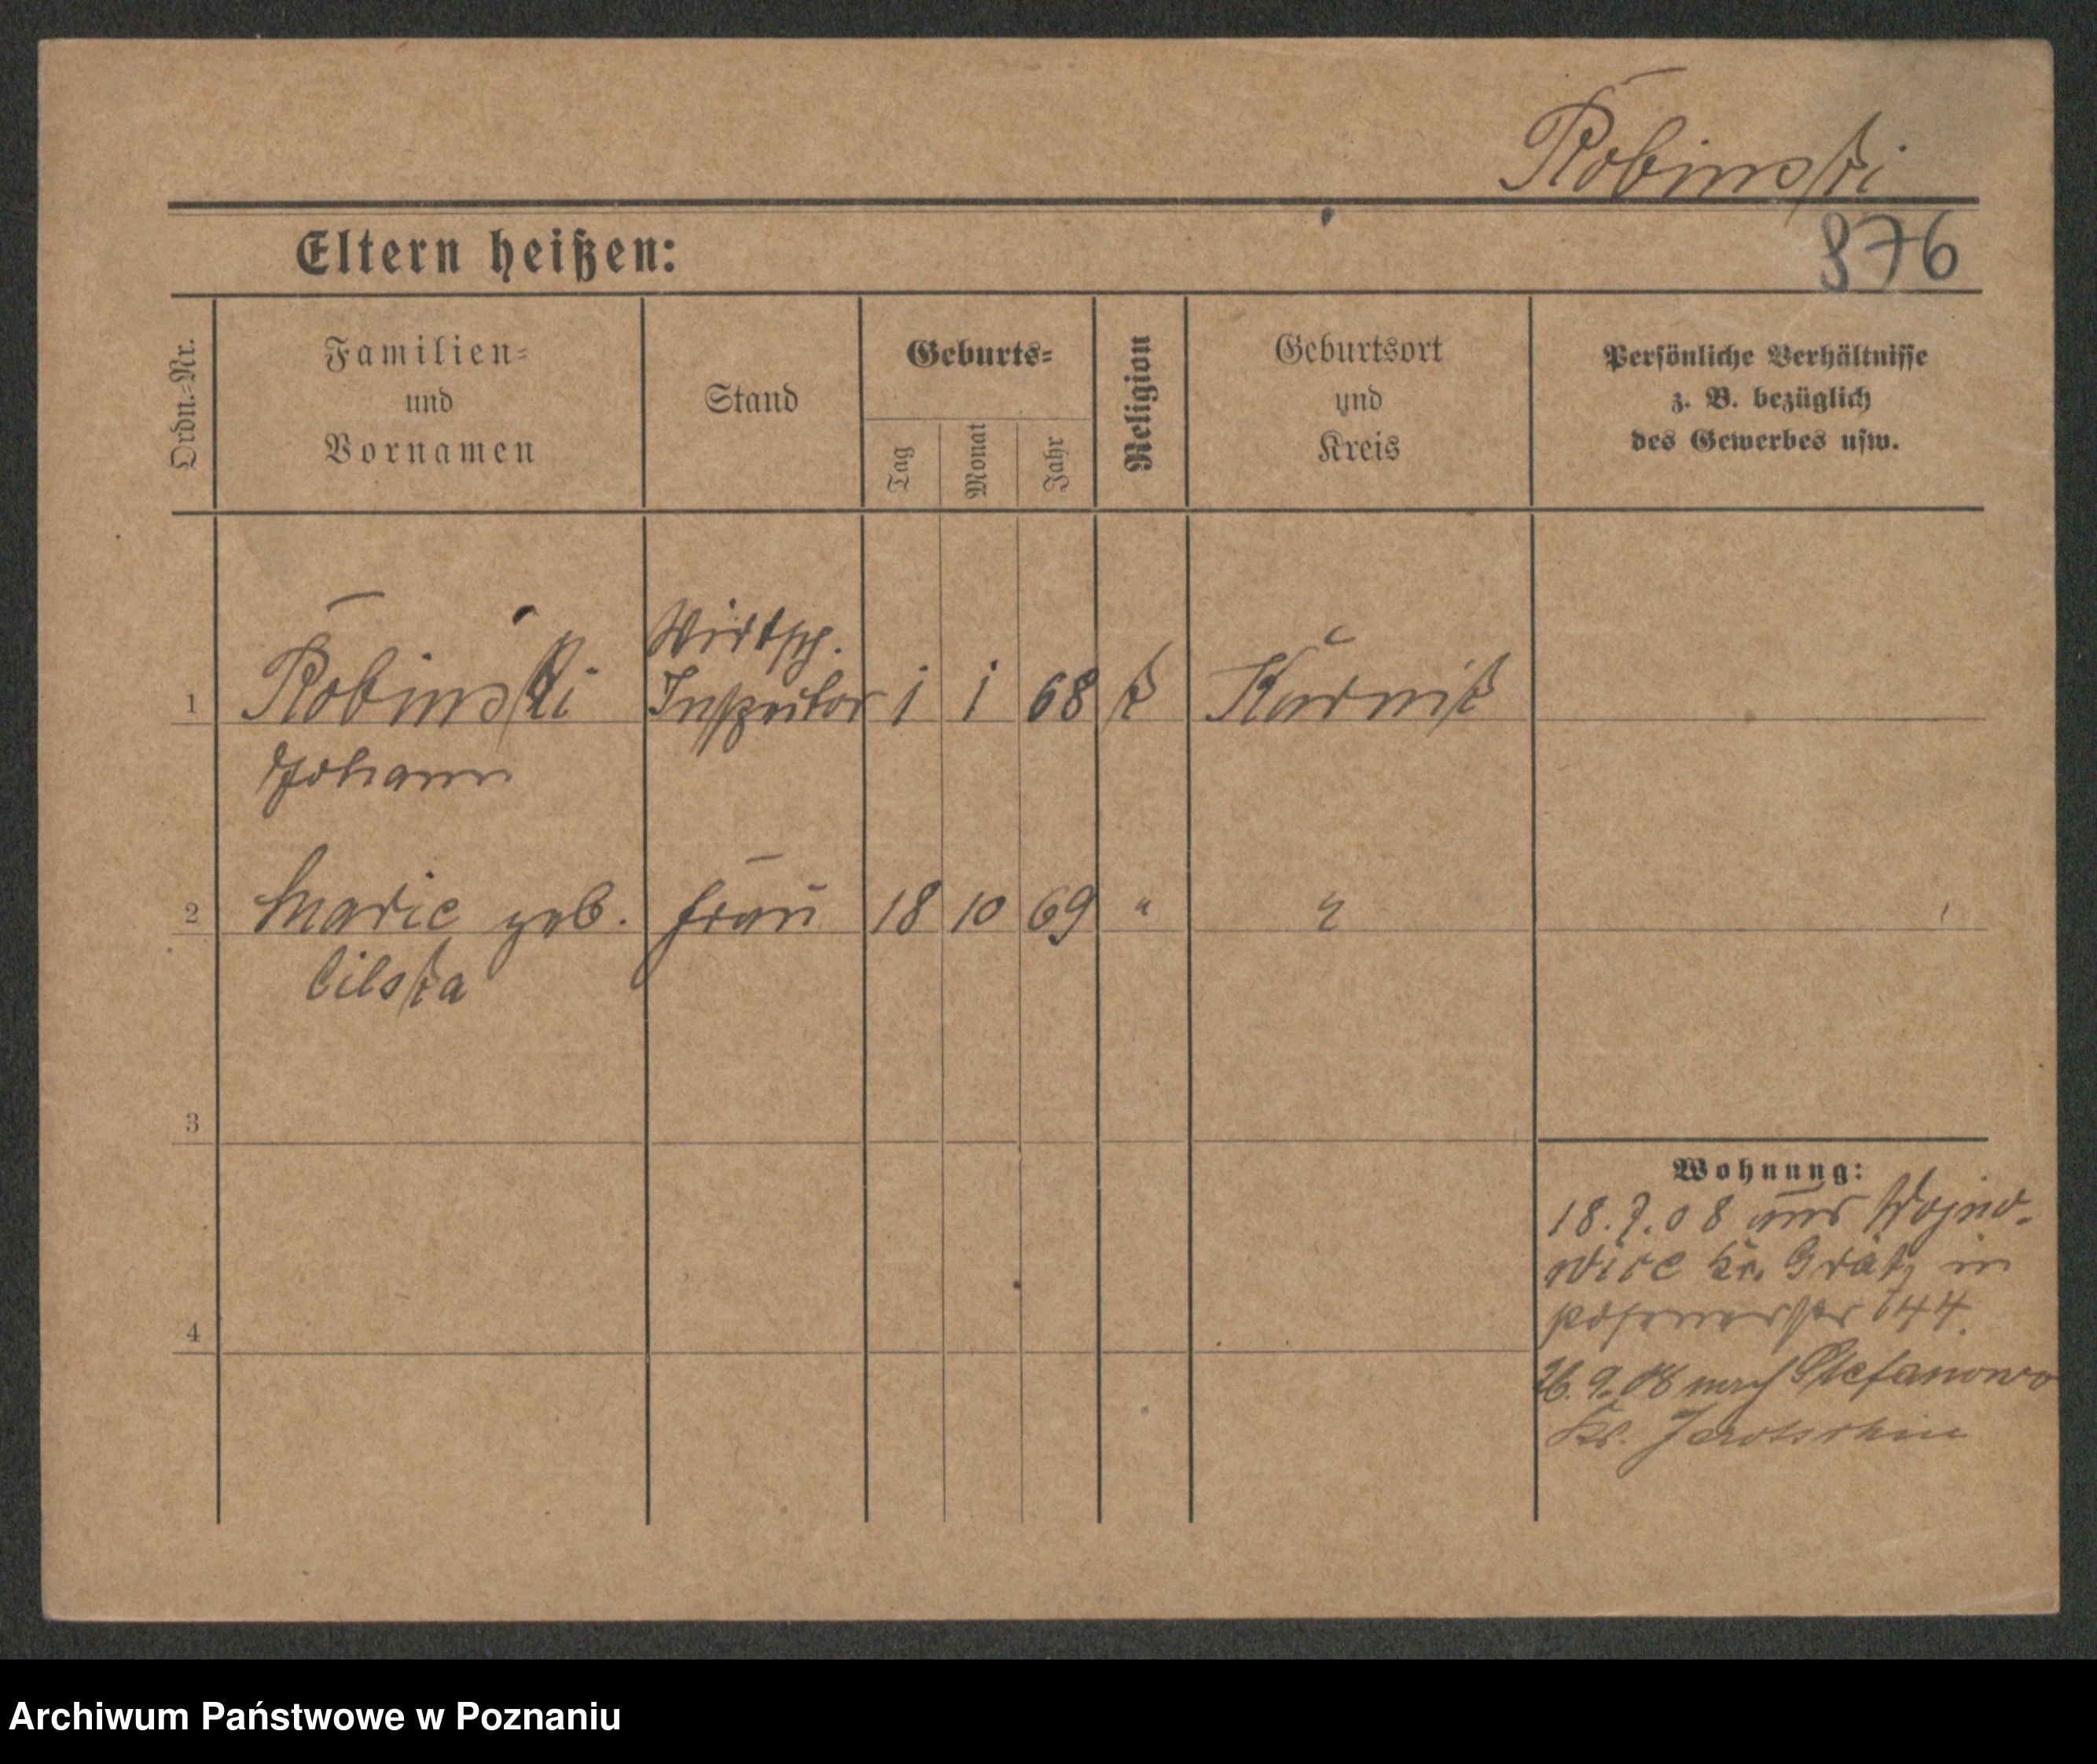 Robinski
876
Eltern heißen:
Ordn.-Nr.
Familien-
und
Vornamen
Stand
Geburts-
Tag
Monat
Jahr
Religion
Geburtsort
und
Kreis
Persönliche Verhältnisse
z. B. bezüglich
des Gewerbes usw.
Wirtsch.
1 Robinski Inspektor 1 1 68 k Kurnik
Johann
2 Marie geb. Frau 18 10 69 " "
Cilska
3
Wohnung:
18.7.08 aus Wojno-
wice Kr. Grätz in
Posenerstr 144.
4
26.9.08 nach Stefanowo
Kr. Jarotschin
Archiwum Państwowe w Poznaniu